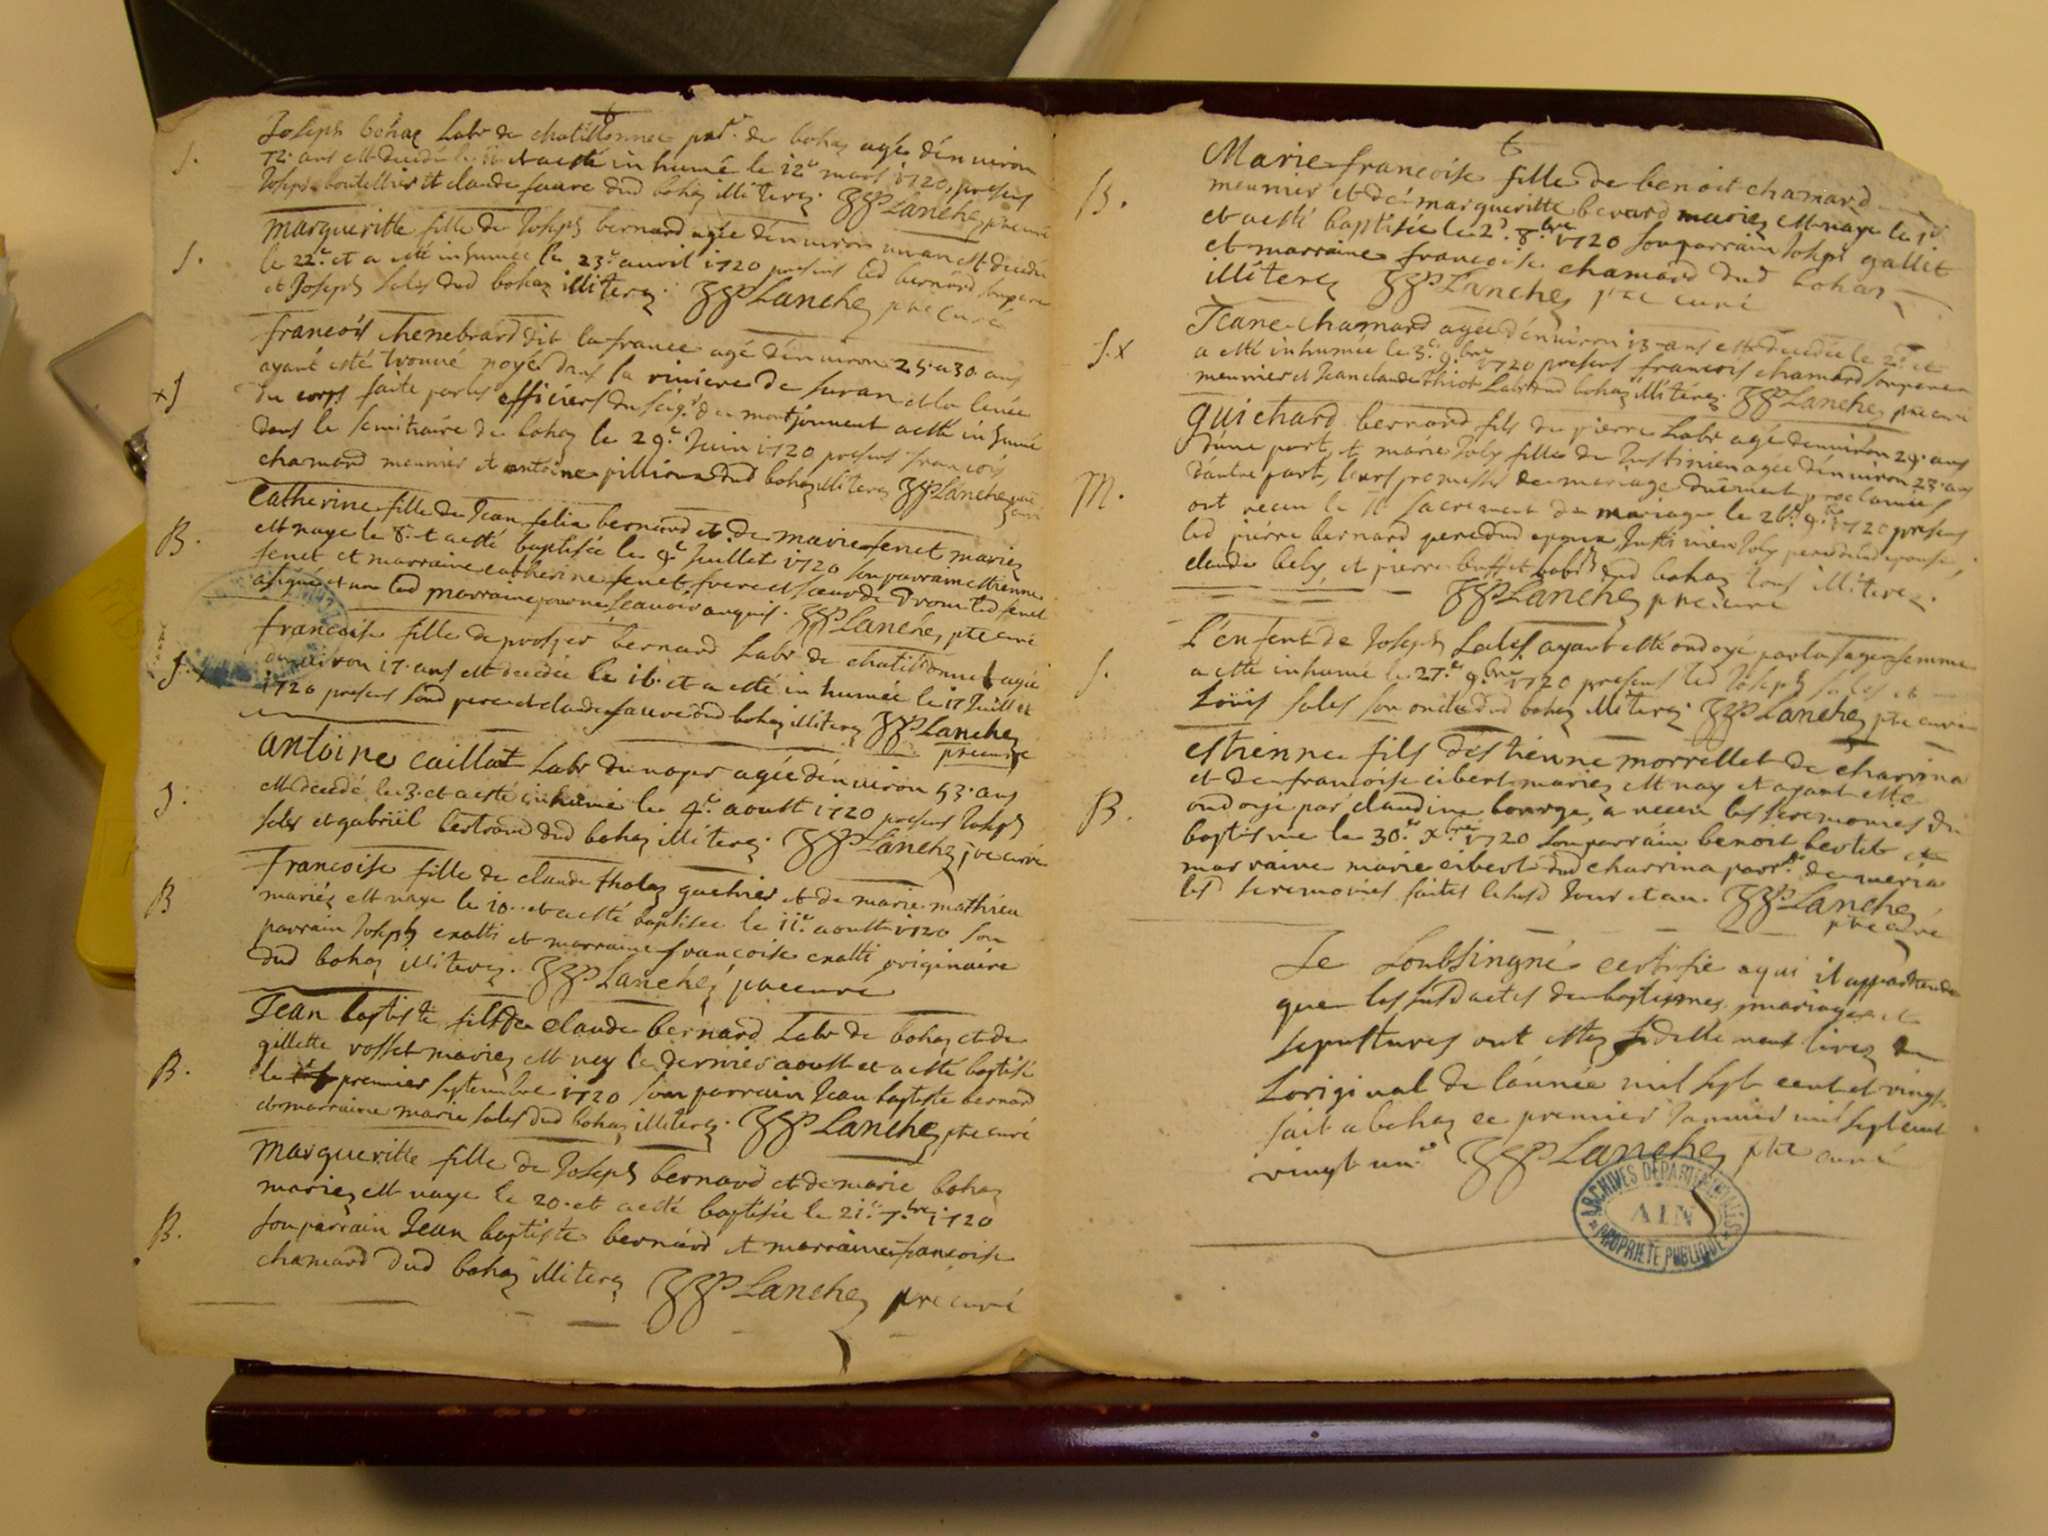 Joseph bohaz Labr de chatillonnet parr. de bohaz agé dénuiron
72. ans est decedé le 11 et a esté in humé le 12e mars 1720, presens
Joseph boutellier et claude faure dud bohaz illiterez. JJP Lanchez ptre curé
S.
margueritte fille de Joseph bernard agée dénuiron un an est decedée
le 22e et a esté inhumée le 23e auril 1720 presens led bernard son pere
et Joseph Sales dud bohaz illiterez. JJP Lanchez ptre Curé
S.
francois chenebrard dit la france agé dénuiron 25. a 30 ans
ayant esté trouué noyé dans la riuiere de suran et la leuée
du corps faite par les officiers du Seigr. de montjouuent a esté in humé
dans le semitiaire de bohaz le 29e Juin 1720 presens francois
chamard meunier et antoine pillion dud bohaz illiterez JJP Lanchez ptre curé
+S
Catherine fille de Jean felix bernard et de marie fenet mariez
est naye le 8. et a esté baptisée le 9e Juillet 1720 son parrain estienne
fenet et marraine catherine fenet frere et soeur de drom led fenet
a signé et non lad marraine pour ne sçauoir enquis. JJP Lanchez, ptre curé
B.
francoise fille de prosper bernard Labr de chatillonnet agée
dénuiron 17. ans est decedée le 16. et a esté in humée le 17 Juillet
1720 presens sond pere et claude faure dud bohaz illiterez JJP Lanchez
ptre curé
S.
antoine caillat Labr de noper agé dénuiron 53. ans
est decedé le 3. et a esté in humé le 4e aoust 1720 presens Joseph
Sales et gabriel bertrand dud bohaz illiterez. JJP Lanchez ptre curé
S.
francoise fille de claude tholaz et de marie mathieu
mariez est naye le 10. et a esté baptisée le 11e aoust 1720 son
parrain Joseph cratti et marraine francoise cratti originaire
dud bohaz illiterez. JJP Lanchez ptre curé
B
Jean baptiste fils de claude bernard Labr de bohaz et de
gillette rosset mariez est nay le dernier aoust et a esté baptisé
le premier septembre 1720 son parrain Jean baptiste bernard
et marraine marie Sales dud bohaz illiterez. JJP Lanchez ptre curé
B.
margueritte fille de Joseph bernard et de marie bohaz
mariez est naye le 20. et a esté baptisée le 21e 7.bre 1720
son parrain Jean baptiste bernard et marraine francoise
chamard dud bohaz illiterez JJP Lanchez ptre curé
B.
Marie francoise fille de benoit chamard
meunier et de margueritte berard mariez est naye le 1er
et a esté baptisée le 2d. 8.bre 1720 son parrain Joseph gallet
et marraine francoise chamard dud bohaz
illiterez JJP Lanchez ptre curé
B.
Jeane chamard agée dénuiron 13 ans est decedée le 2d et
a esté inhumée le 3e 9.bre 1720 presens francois chamard son pere
meunier et Jean claude thiot Labr dud bohaz illiterez. JJP Lanchez ptre curé
S. x
guichard bernard fils de pierre Labr agé dénuiron 29. ans
d'une part, et marie Joly fille de Justinien agée dénuiron 23. ans
dautre part, leurs promesses de mariage duëment proclamées
ont receu le st sacrement de mariage le 26e 9.bre 1720 presens
led pierre bernard pere dud epoux, Justinien Joly pere de lad epouse,
claude bely et pierre buffet Labrs dud bohaz tous illiterez.
JJP Lanchez ptre curé
M.
L'enfent de Joseph Sales ayant esté ondoyé par la sage femme
a esté inhumé le 27e 9.bre 1720 presens led Joseph Sales et
Loüis Sales son oncle dud bohaz illiterez. JJP Lanchez ptre curé
S.
estienne fils d'estienne morrellet de charrina
et de francoise cibert mariez est nay et ayant esté
ondoyé par claudine bourge, a receu les seremonies du
baptisme le 30e x.bre 1720 son parrain benoit bertet et
marraine marie cibert dud charrina parr. de meria
lesd seremonies faites lesusd Jour et an. JJP Lanchez
ptre curé
B.
Je Soubsingné certifie a qui il appartiendra
que les susd actes de baptesmes, mariages et
sepultures ont estez fidellement tirez sur
Loriginal de lánnée mil sept cent et vingt
fait a bohaz ce premier Januier mil sept cent
vingt un. JJP Lanchez ptre curé
ARCHIVES DÉPARTEMENTALES
AIN
PROPRIÉTÉ PUBLIQUE